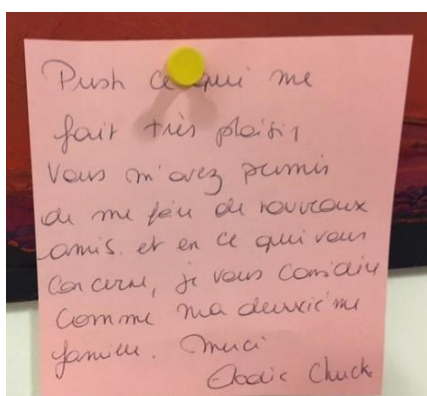 Push ce qui me
fait très plaisir,
Vous m'avez permis
de me faire de nouveaux
amis. et en ce qui vous
concerne, je vous considère
comme ma deuxième
famille. Merci
Elodie Chuck